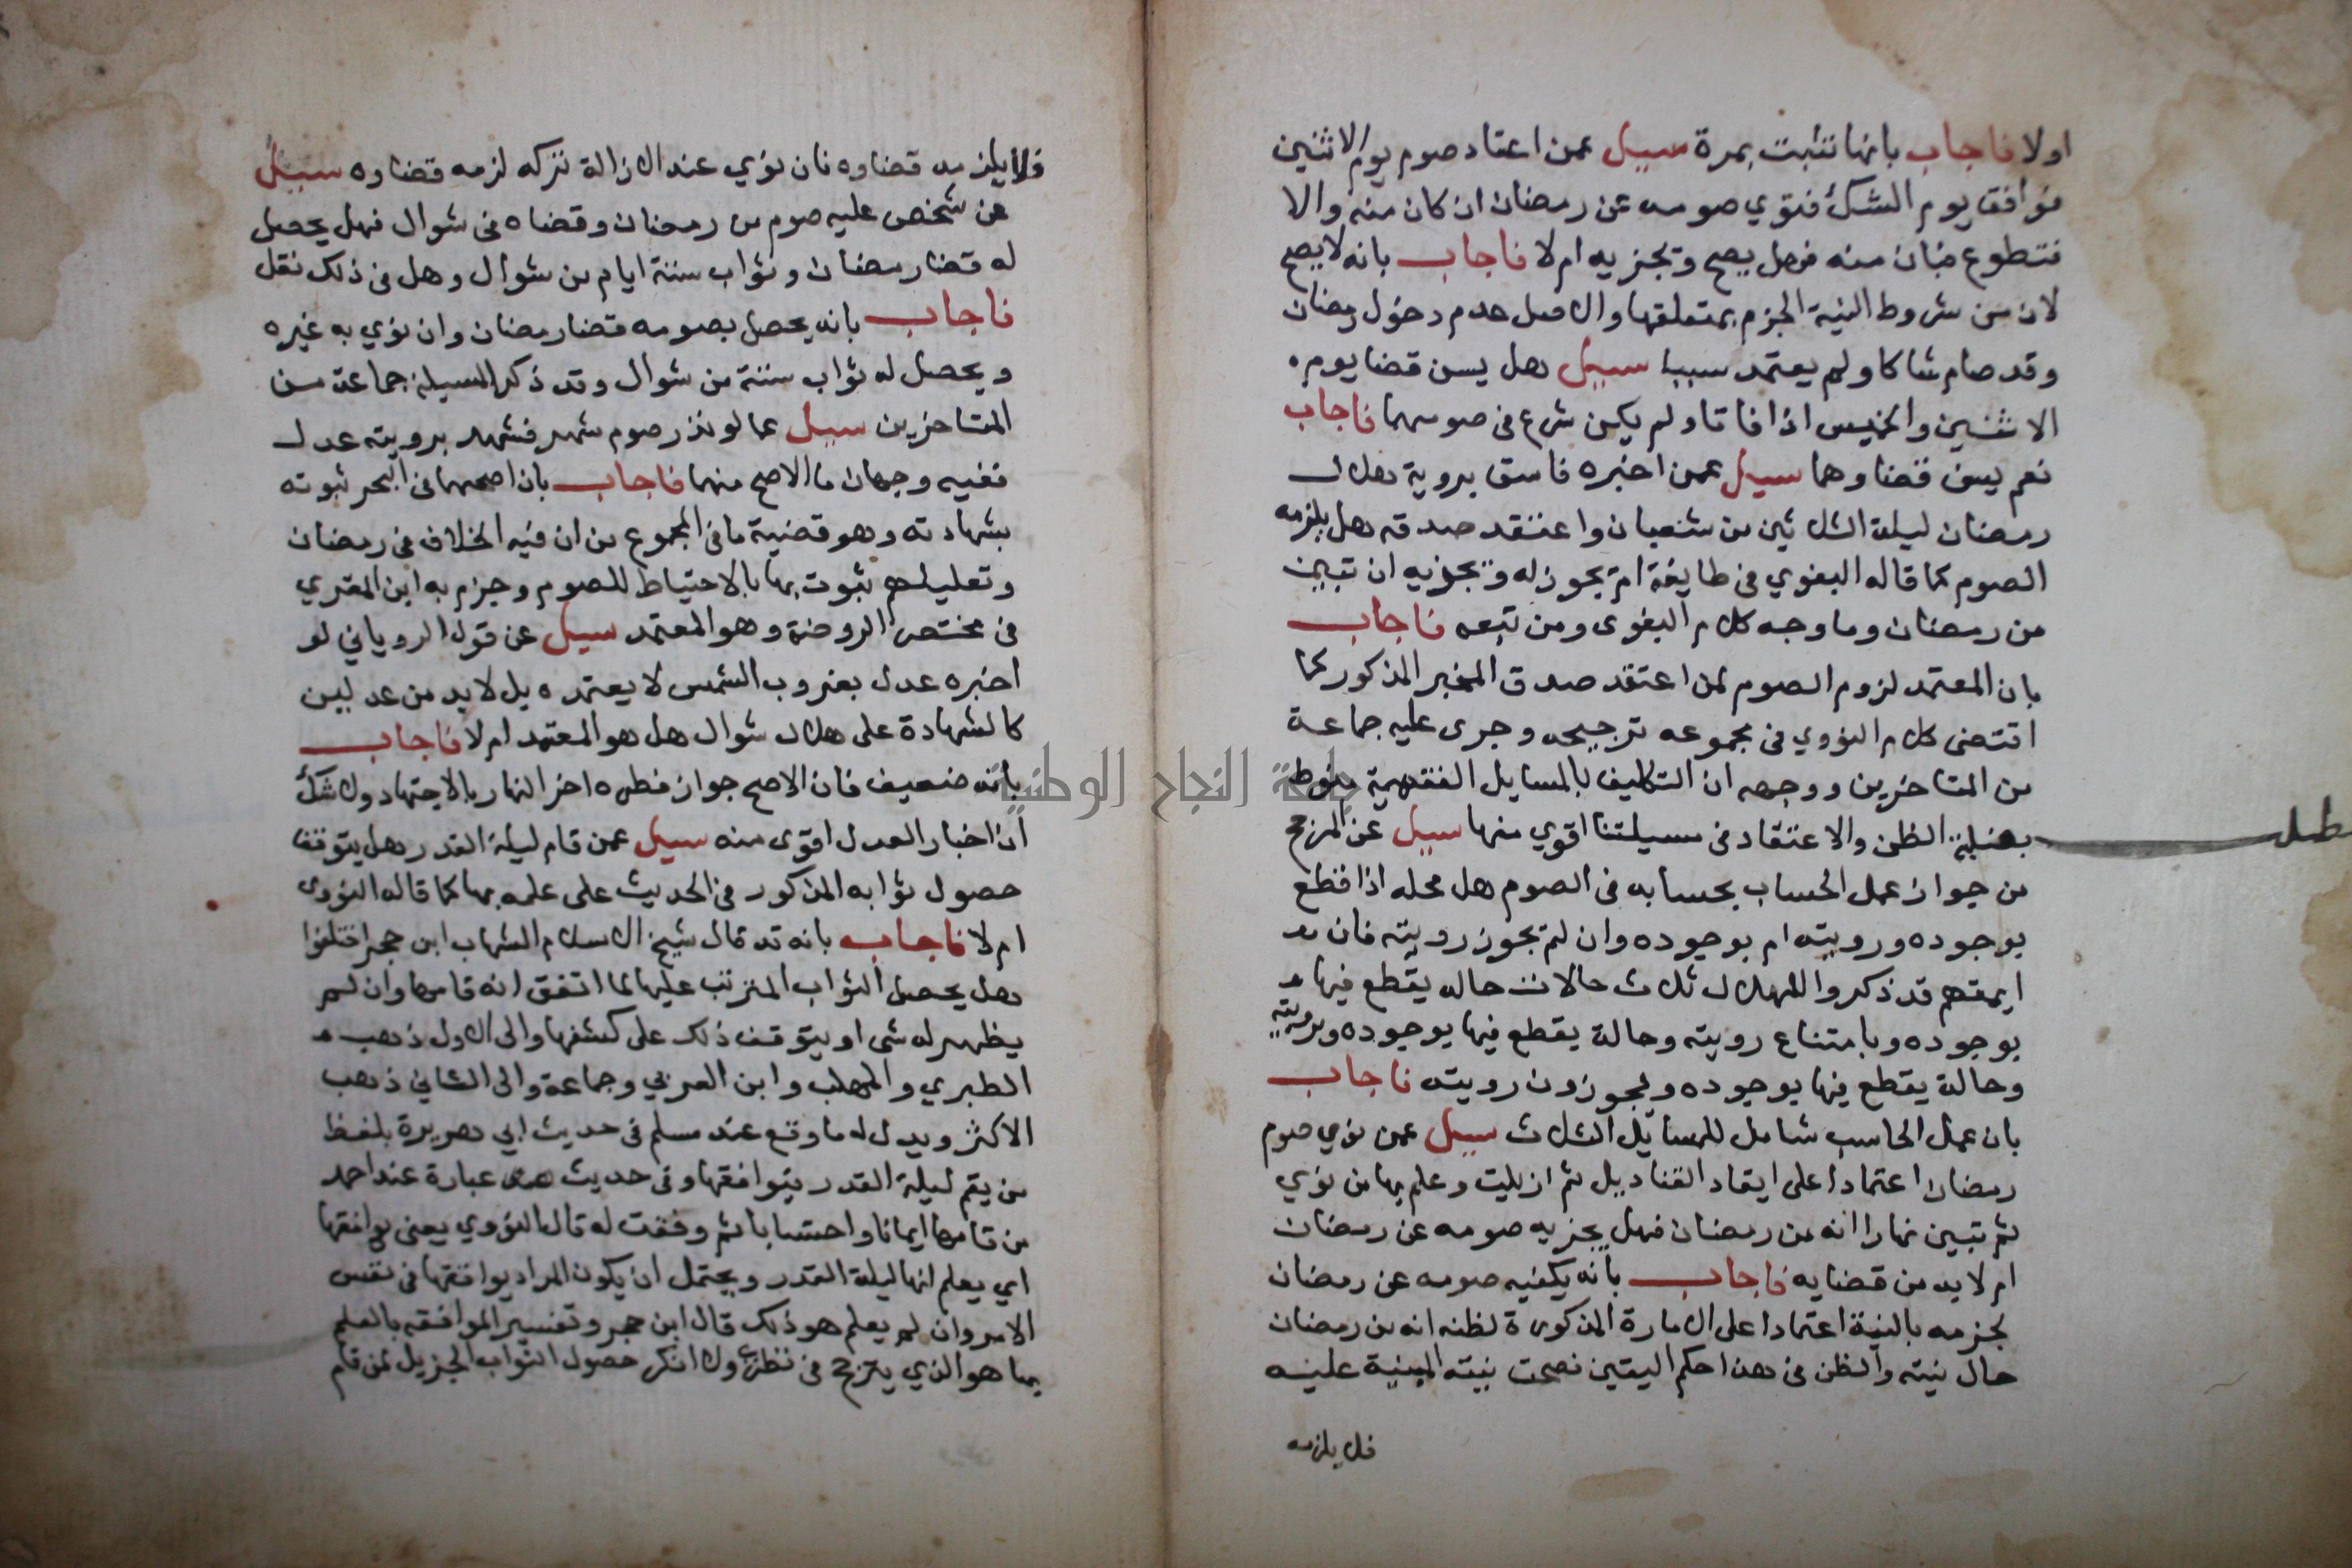 اولا فاجاب بانها تثبت بمرة سيل عمن اعتاد صوم يوم الاثنين
فوافق يوم الشك فنوي صومه عن رمضان ان كان منه والا
فتطوع فبان منه فهل يصح وتجزيه ام لا فاجاب بانه لا يصح
لان من شروط النية الجزم بمتعلقها والاصل عدم دخول رمضان
وقد صام شاكا ولم يعتمد سببا سيل هل يسن قضا يوم
الاثنين والخميس اذا فاتا ولم يكن شرع في صومهما فاجاب
نعم يسن قضاوهما سيل عمن اخبره فاسق بروية هلال
رمضان ليلة الثلاثين من شعبان واعتقد صدقه هل يلزمه
الصوم كما قاله البغوي في طايفة ام يجوز له وتجزيه ان تبين
من رمضان وما وجه كلام البغوى ومن تبعه فاجاب
بان المعتمد لزوم الصوم لمن اعتقد صدق المخبر المذكور كما
اقتضى كلام النووي في مجموعه ترجيحه وجرى عليه جماعة
من المتاخرين ووجهه ان التكليف بالمسايل الفقهية منوط
بغلبة الظن والاعتقاد في مسيلتنا اقوي منها سيل عن المرجح
من جواز عمل الحساب بحسابه في الصوم هل محله اذا قطع
بوجوده ورويته ام بوجوده وان لم تجوز رويته فان
ايمتهم قد ذكروا للهلال ثلاث حالات حاله يقطع فيها
بوجوده وبامتناع رويته وحالة يقطع فيها بوجوده وبرويته
وحالة يقطع فيها بوجوده ويجوزون رويته فاجاب
بان عمل الحاسب شامل للمسايل الثلاث سيل عمن نوي صوم
رمضان اعتمادا على ايقاد القناديل ثم ازيلت وعلم بها من نوي
ثم تبين نهارا انه من رمضان فهل يجزيه صومه عن رمضان
ام لا بد من قضايه فاجاب بانه يكفيه صومه عن رمضان
لجزمه بالنية اعتمادا على الامارة المذكورة لظنه انه من رمضان
حال نيته والظن في هذا حكم اليقين فصحت نيته المبنية عليه
فلا يلزمه
فلا يلزمه قضاوه فان نوي عند الازالة تركه لزمه قضاوه سيل
عن شخص عليه صوم من رمضان وقضاه في شوال فهل يحصل
له قضا رمضان وثواب ستة ايام من شوال وهل في ذلك نقل
فاجاب بانه يحصل بصومه قضا رمضان وان نوي به غيره
ويحصل له ثواب ستة من شوال وقد ذكر المسيلة جماعة من
المتاخرين سيل عما لو نذر صوم شهر فشهد برويته عدل
ففيه وجهان ما الاصح منهما فاجاب بان اصحهما في البحر ثبوته
بشهادته وهو قضية ما في المجموع من ان فيه الخلاف في رمضان
وتعليلهم ثبوت بها بالاحتياط للصوم وجزم به ابن المقري
في مختصر الروضة وهو المعتمد سيل عن قول الروياني لو
اخبره عدل بغروب الشمس لا يعتمده بل لا بد من عدلين
كالشهادة على هلال شوال هل هو المعتمد ام لا فاجاب
بانه ضعيف فان الاصح جواز فطره اخر النهار بالاجتهاد ولا شك
ان اخبار العدل اقوى منه سيل عمن قام ليلة القدر هل يتوقف
حصول ثوابه المذكور في الحديث على علمه بها كما قاله النووى
ام لا فاجاب بانه قد قال شيخ الاسلام الشهاب ابن حجر اختلفوا
هل يحصل الثواب المترتب عليها لما اتفق انه قامها وان لم
يظهر له شى او يتوقف ذلك على كشفها والى الاول ذهب
الطبري والمهلب وابن العربي وجماعة والى الثاني ذهب
الاكثر ويدل له ما وقع عند مسلم في حديث ابي هريرة بلفظ
من يقم ليلة القدر فيوافقها وفي حديث عبارة عند احمد
من قامها ايمانا واحتسابا ثم وفقت له قال النووي يعنى يوافقها
اي يعلم انها ليلة القدر ويحتمل ان يكون المراد يوافقها في نفس
الامر وان لم يعلم هو ذلك قال ابن حجر وتفسير الموافقه بالعلم
بها هو الذي يترجح في نظري ولا انكر حصول الثواب الجزيل لمن قام
جامعة النجاح الوطنية